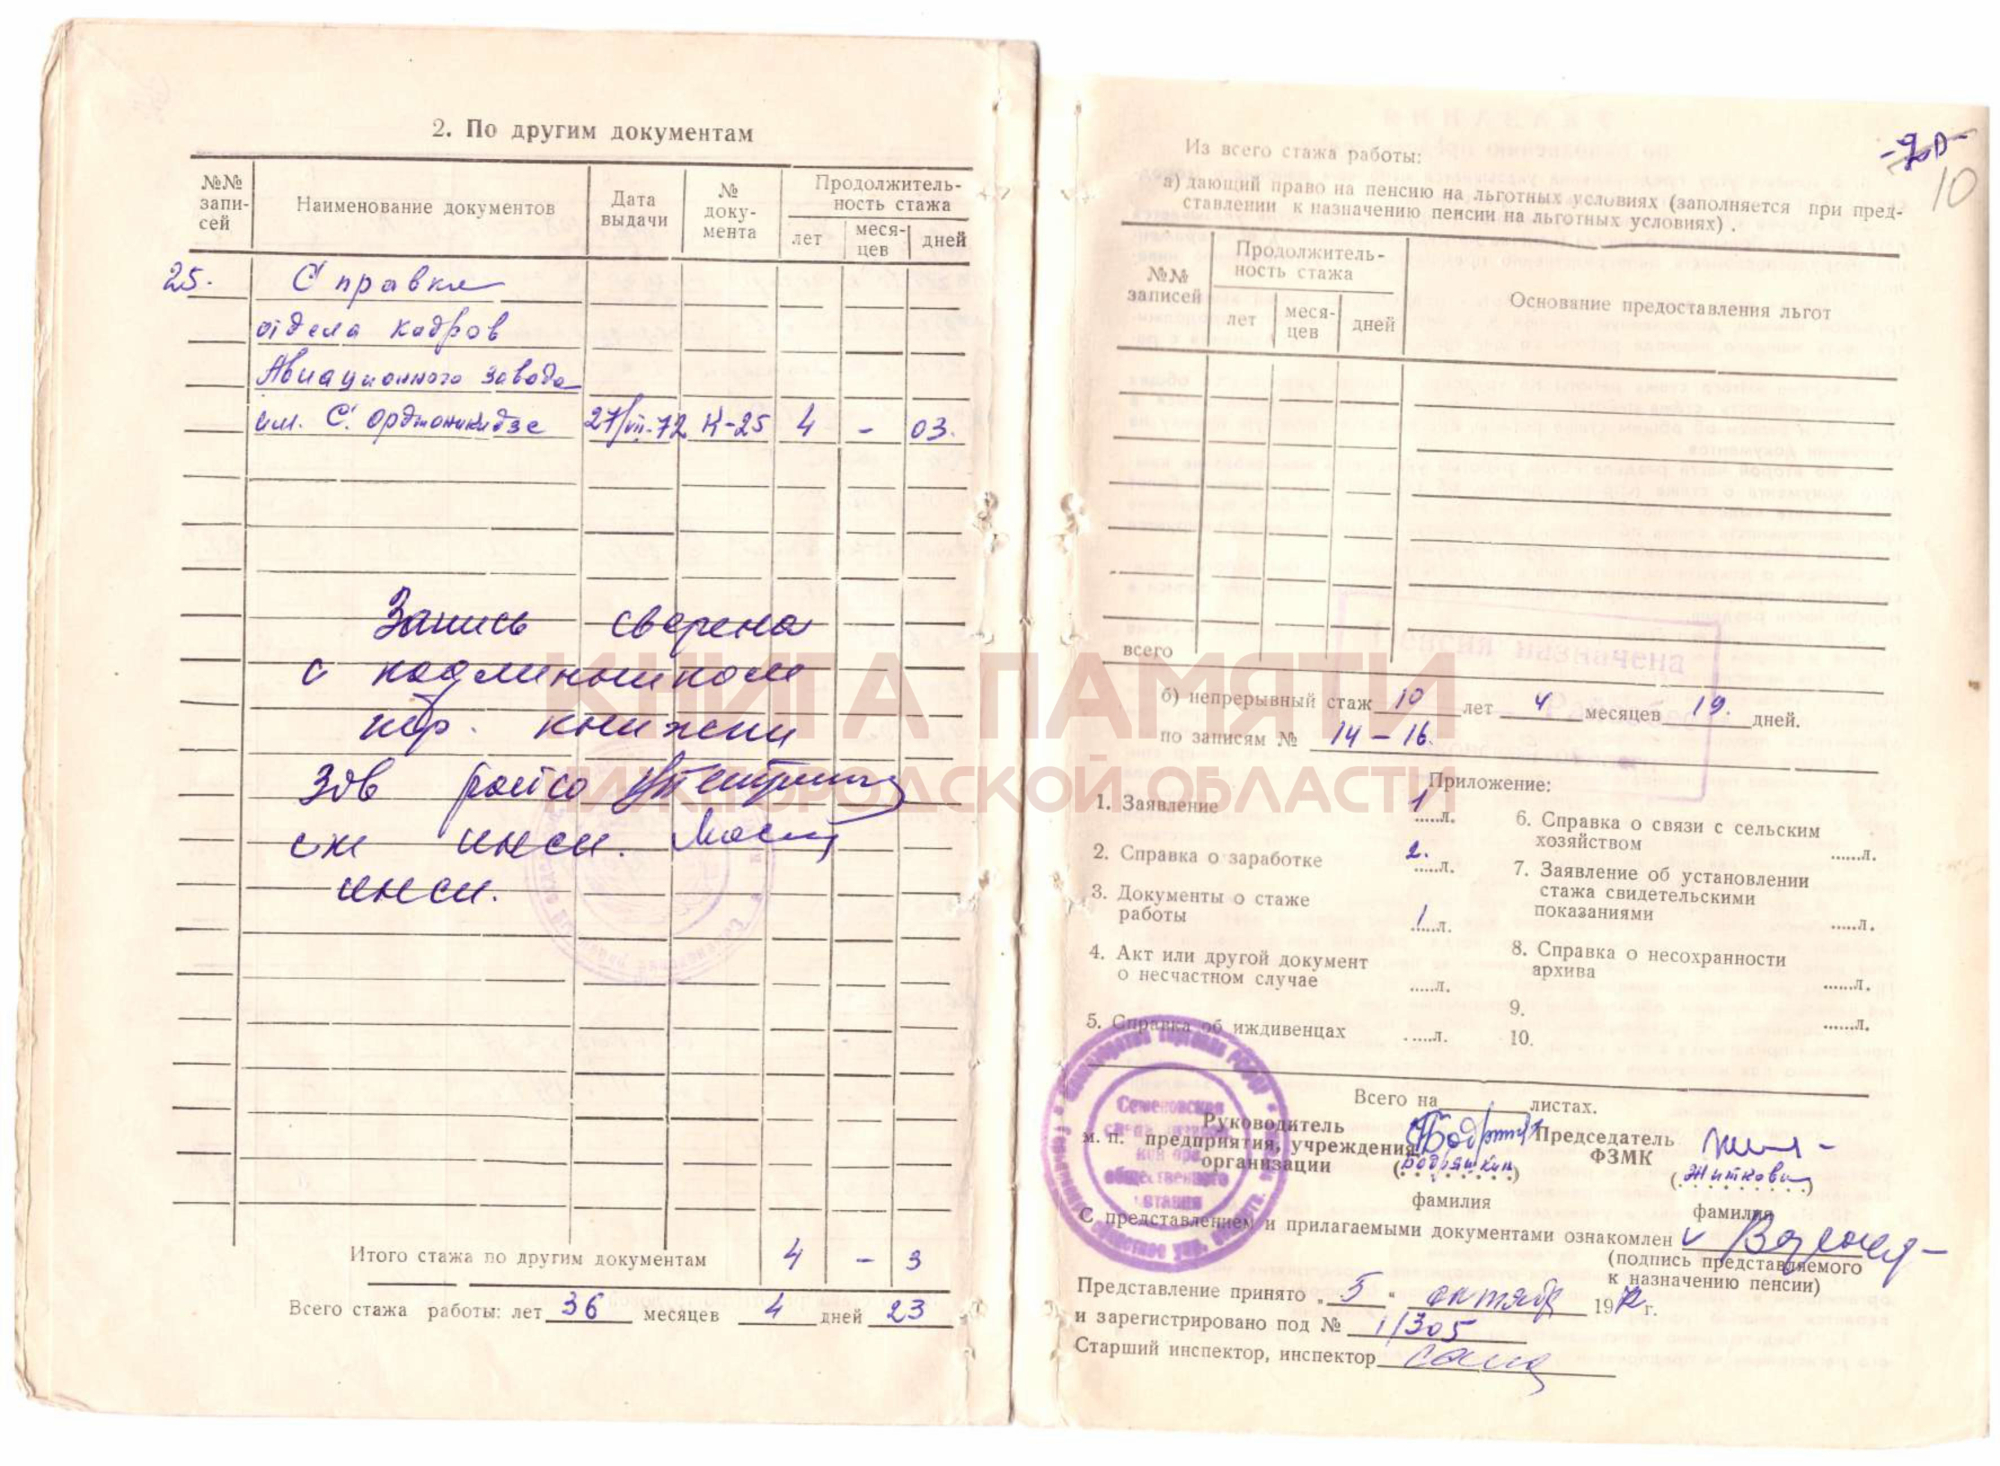 2. По другим документам
№№ запи- сей
Наименование документов
Дата выдачи
№ доку- мента
Продолжитель- ность стажа
лет
меся- цев
дней
25. Справка
отдела кадров
Авиационного завода
им. С. Орджоникидзе 27/VII-72 К-25 4 - 03.
Запись сверена
с подлинником
тр. книжки
Зав райсо
ст инсп.
инсп.
Итого стажа по другим документам 4 - 3
Всего стажа работы: лет 36 месяцев 4 дней 23
10
Из всего стажа работы:
а) дающий право на пенсию на льготных условиях (заполняется при пред-
ставлении к назначению пенсии на льготных условиях).
№№ записей
Продолжитель- ность стажа
лет
меся- цев
дней
Основание предоставления льгот
всего
Пенсия назначена
б) непрерывный стаж 10 лет 4 месяцев 19. дней.
по записям № 14 - 16.
Приложение:
1. Заявление 1 .....л.
2. Справка о заработке 2. .....л.
3. Документы о стаже
работы 1 .....л.
4. Акт или другой документ
о несчастном случае .....л.
5. Справка об иждивенцах .....л.
6. Справка о связи с сельским
хозяйством ......л.
7. Заявление об установлении
стажа свидетельскими
показаниями .....л.
8. Справка о несохранности
архива ......л.
9. ......л.
10.
Всего на листах.
м. п. Руководитель
предприятия, учреждения
организации (Бодряшкин)
фамилия
Председатель
ФЗМК
(Житкович)
фамилия
С представлением и прилагаемыми документами ознакомлен
(подпись представляемого
к назначению пенсии)
Представление принято „ 5 " октября 1972 г.
и зарегистрировано под № 1/305
Старший инспектор, инспектор
Семеновское
общественного
питания
КНИГА ПАМЯТИ
НИЖЕГОРОДСКОЙ ОБЛАСТИ